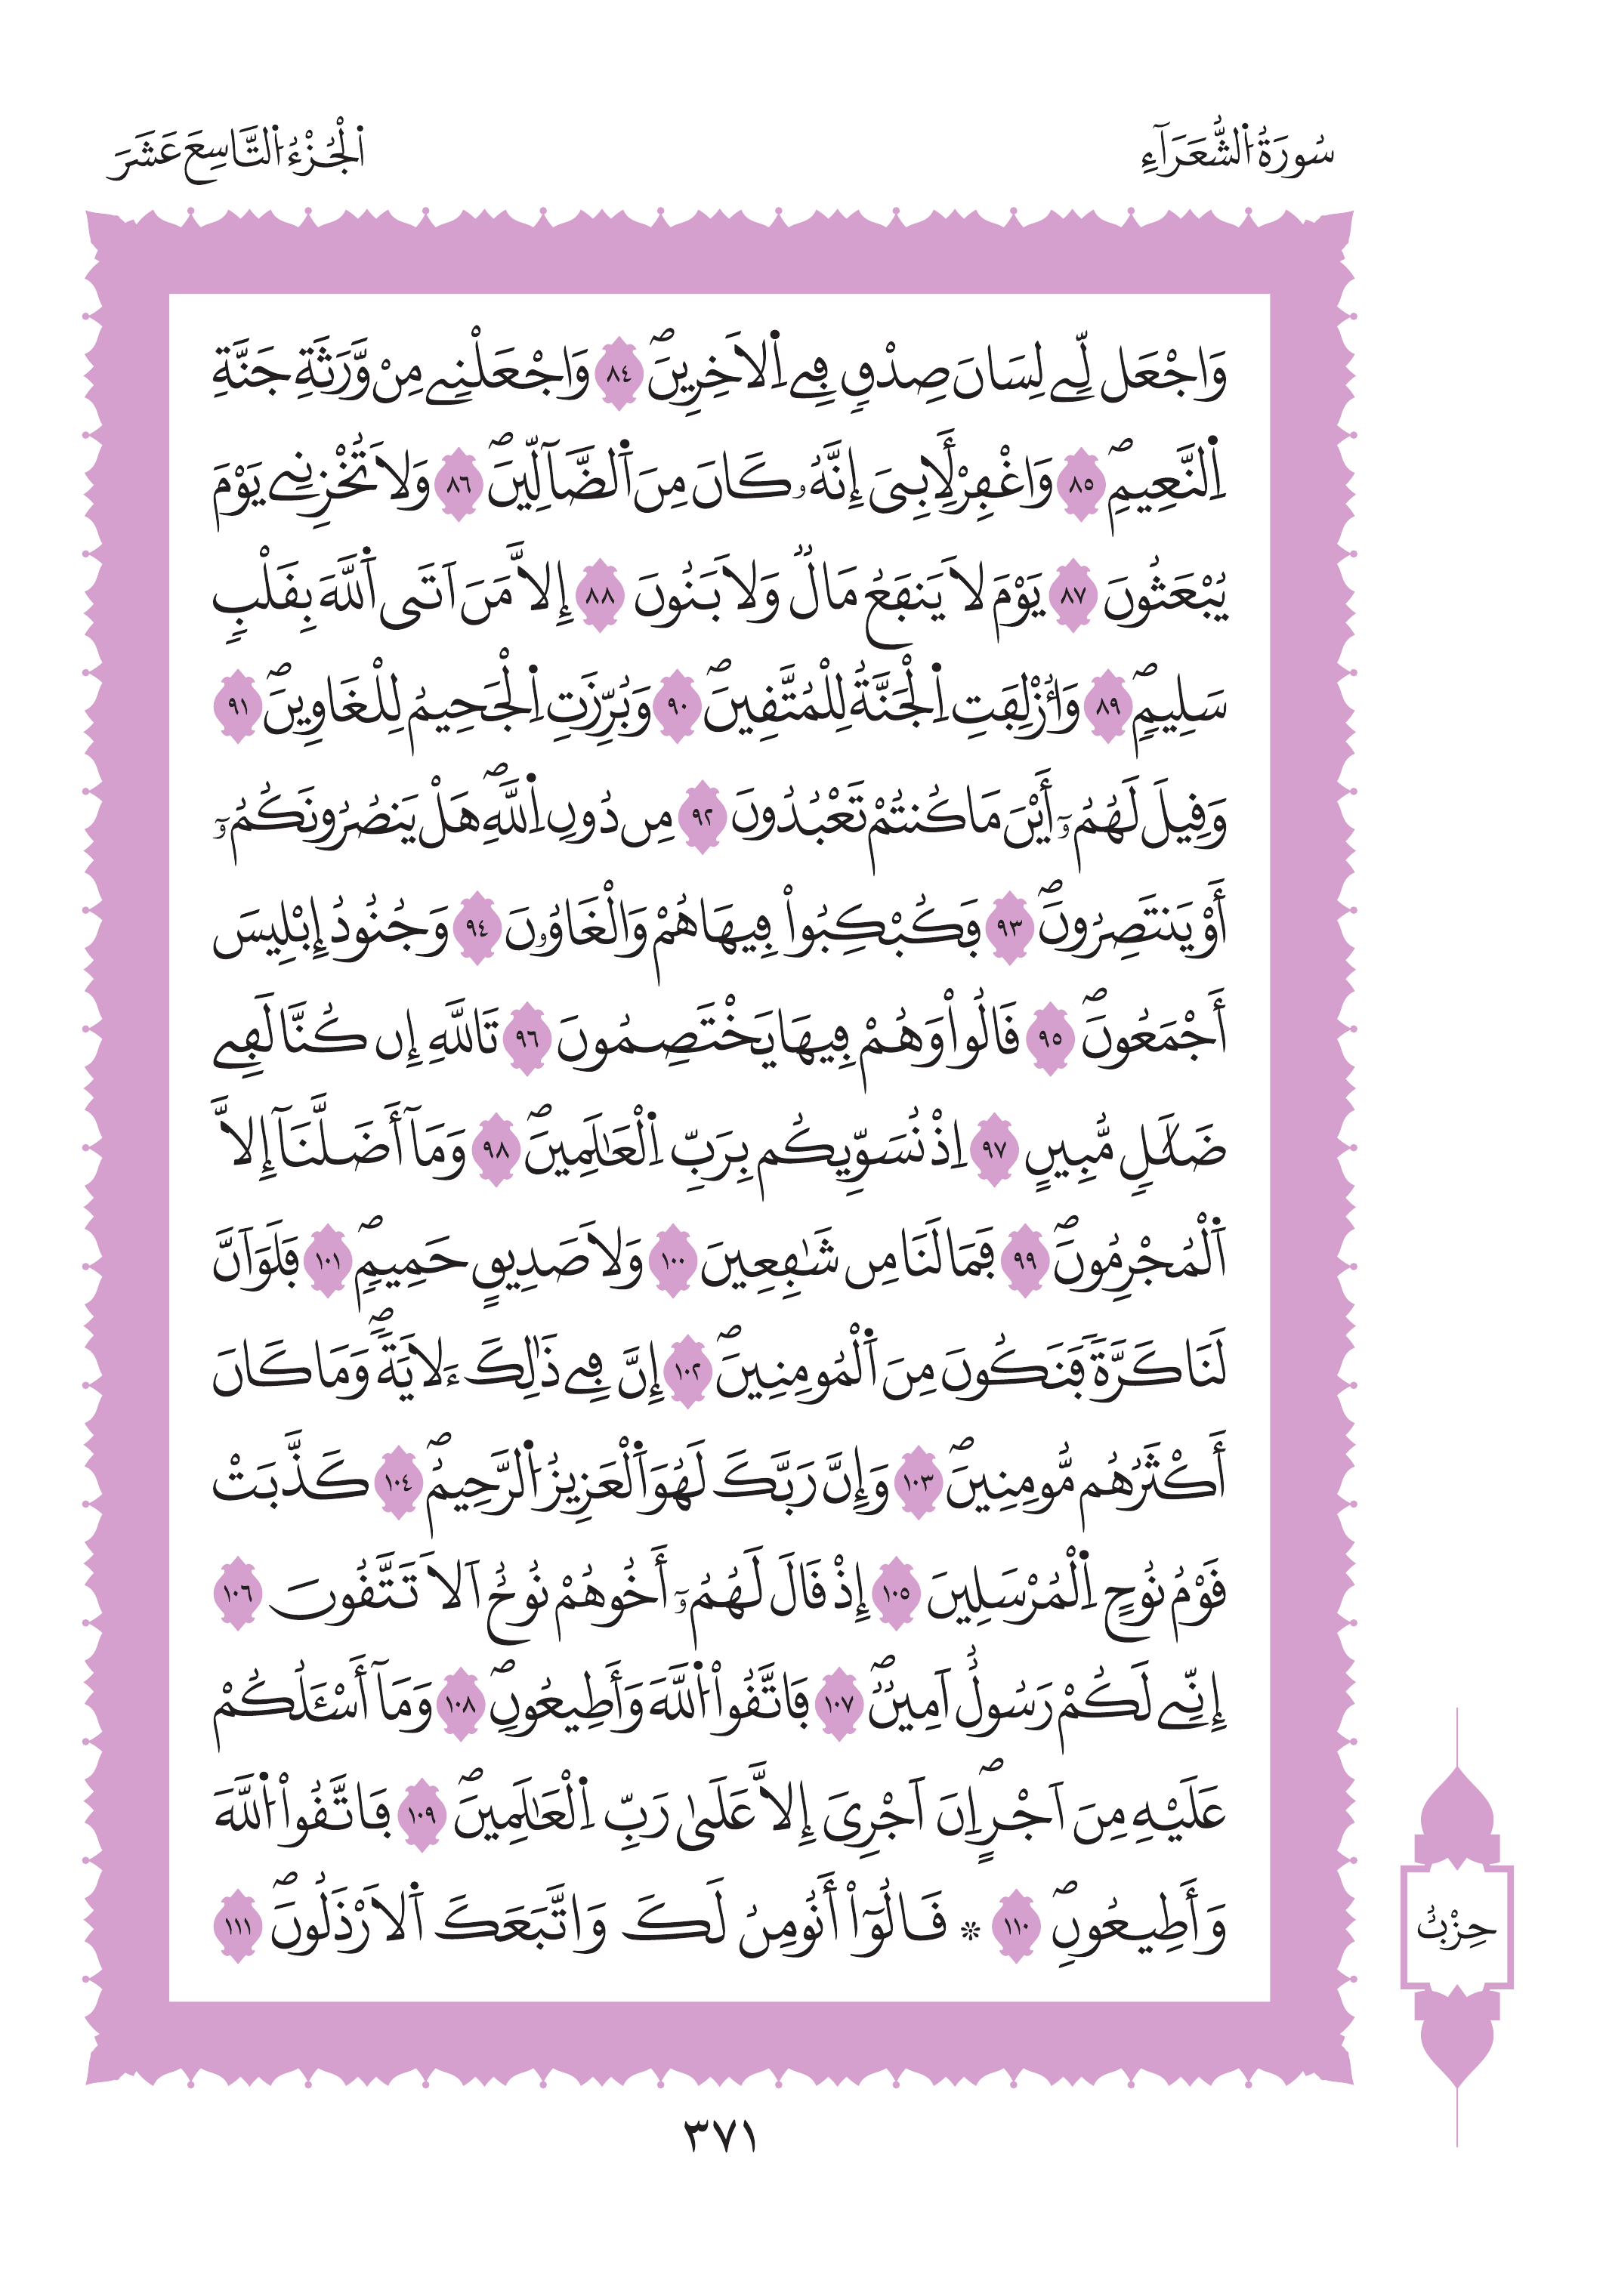 سُورَةُ اُ۬لشُّعَرَآءِ
اَ۬لْجُزْءُ اُ۬لتَّاسِعَ عَشَرَ
وَاجْعَل لِّے لِسَانَ صِدْقٖ فِے اِ۬لَاخِرِينَۖ ٨٤ وَاجْعَلْنِے مِنْ وَّرَثَةِ جَنَّةِ
اِ۬لنَّعِيمِۖ ٨٥ وَاغْفِرْ لِأَبِىَ إِنَّهُۥ كَانَ مِنَ اَ۬لضَّآلِّينَۖ ٨٦ وَلَا تُخْزِنِے يَوْمَ
يُبْعَثُونَ ٨٧ يَوْمَ لَا يَنفَعُ مَالٞ وَلَا بَنُونَ ٨٨ إِلَّا مَنَ اَتَى اَ۬للَّهَ بِقَلْبٖ
سَلِيمٖۖ ٨٩ وَأُزْلِفَتِ اِ۬لْجَنَّةُ لِلْمُتَّقِينَۖ ٩٠ وَبُرِّزَتِ اِ۬لْجَحِيمُ لِلْغَاوِينَۖ ٩١
وَقِيلَ لَهُمُۥٓ أَيْنَ مَا كُنتُمْ تَعْبُدُونَ ٩٢ مِن دُونِ اِ۬للَّهِۖ هَلْ يَنصُرُونَكُمُۥٓ
أَوْ يَنتَصِرُونَۖ ٩٣ فَكُبْكِبُواْ فِيهَا هُمْ وَالْغَاوُۥنَ ٩٤ وَجُنُودُ إِبْلِيسَ
أَجْمَعُونَۖ ٩٥ قَالُواْ وَهُمْ فِيهَا يَخْتَصِمُونَ ٩٦ تَاللَّهِ إِن كُنَّا لَفِے
ضَلَٰلٖ مُّبِينٍ ٩٧ اِذْ نُسَوِّيكُم بِرَبِّ اِ۬لْعَٰلَمِينَۖ ٩٨ وَمَآ أَضَلَّنَآ إِلَّا
اَ۬لْمُجْرِمُونَۖ ٩٩ فَمَا لَنَا مِن شَٰفِعِينَ ١٠٠ وَلَا صَدِيقٍ حَمِيمٖۖ ١٠١ فَلَوَ اَنَّ
لَنَا كَرَّةٗ فَنَكُونَ مِنَ اَ۬لْمُومِنِينَۖ ١٠٢ إِنَّ فِے ذَٰلِكَ ءَلَايَةٗۖ وَمَا كَانَ
أَكْثَرُهُم مُّومِنِينَۖ ١٠٣ وَإِنَّ رَبَّكَ لَهُوَ اَ۬لْعَزِيزُ اُ۬لرَّحِيمُۖ ١٠٤ كَذَّبَتْ
قَوْمُ نُوحٍ اِ۬لْمُرْسَلِينَ ١٠٥ إِذْ قَالَ لَهُمُۥٓ أَخُوهُمْ نُوحٌ اَلَا تَتَّقُونَ ١٠٦
إِنِّے لَكُمْ رَسُولٌ اَمِينٞۖ ١٠٧ فَاتَّقُواْ اُ۬للَّهَ وَأَطِيعُونِۖ ١٠٨ وَمَآ أَسْـَٔلُكُمْ
عَلَيْهِ مِنَ اَجْرٍۖ اِنَ اَجْرِىَ إِلَّا عَلَىٰ رَبِّ اِ۬لْعَٰلَمِينَۖ ١٠٩ فَاتَّقُواْ اُ۬للَّهَ
وَأَطِيعُونِۖ ١١٠ * قَالُوٓاْ أَنُومِنُ لَكَ وَاتَّبَعَكَ اَ۬لَارْذَلُونَۖ ١١١
حِزْبُ
٣٧١